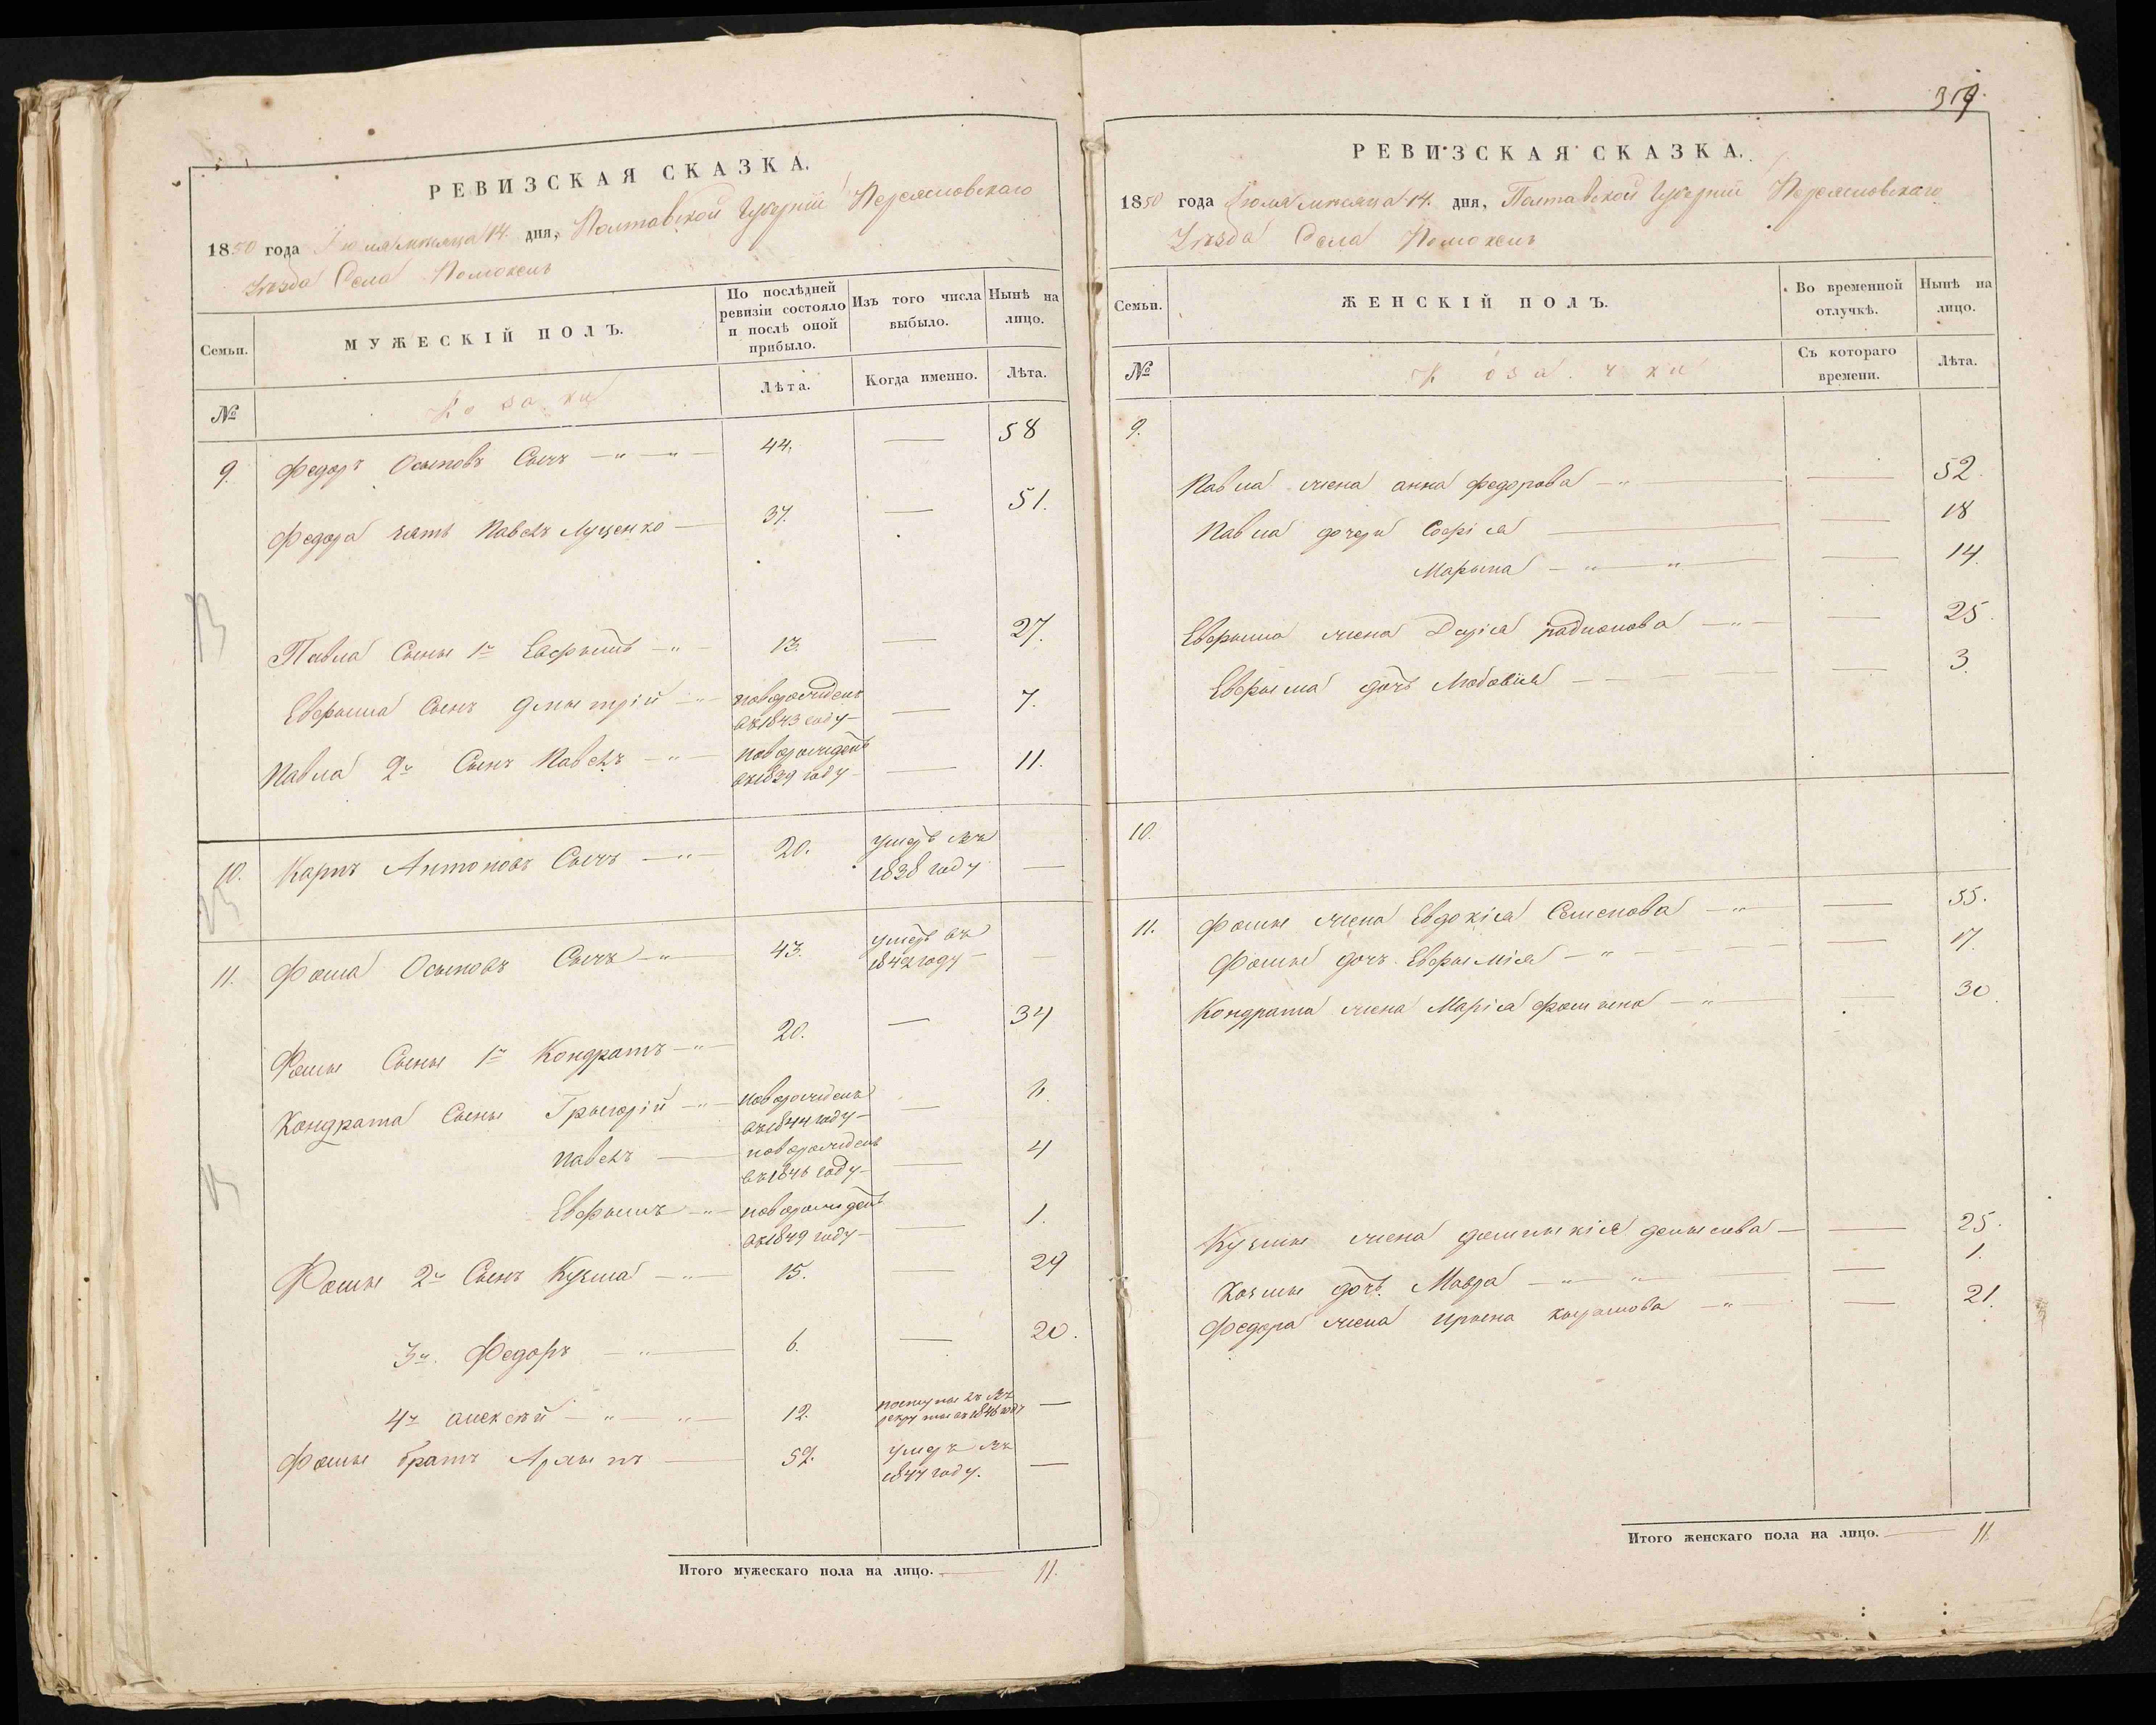 РЕВИЗСКАЯ СКАЗКА.
1850 года Июля месяца 14. дня, Полтавской Губерніи Переясловскаго
Уѣзда Села Помоклъ
Семьи.
МУЖЕСКІЙ ПОЛЪ.
По послѣдней ревизіи состояло и послѣ оной прибыло.
Изъ того числа выбыло.
Нынѣ на лицо.
№
Козаки
Лѣта.
Когда именно.
Лѣта.
9. Федоръ Осиповъ Сычъ 44. 58
Федора зять Павелъ Луценко 37. 51.
Павла Сыны 1й Евфымъ 13. 27.
Евфыма Сынъ Дмытрій новорожденъ 7.
въ 1843 году
Павла 2й Сынъ Павелъ новорожденъ 11.
въ 1839 году
10. Карпъ Антоновъ Сычъ 20. умеръ въ
1838 году
11. Фома Осыповъ Сычъ 43. умеръ въ
1842 году
Фомы Сыны 1й Кондратъ 20. 34
Кондрата Сыны Грыгорій новорожденъ 6
въ 1844 году
Павелъ новорожденъ 4
въ 1846 году
Евфымъ новорожденъ 1.
въ 1849 году
Фомы 2й Сынъ Кузма 15. 29
3й Федоръ 6. 20.
4й алексѣй 12. поступилъ въ
рекруты въ 1846 году
Фомы братъ Архыпъ 52. умеръ въ
1844 году.
Итого мужескаго пола на лицо. 11.
319.
РЕВИЗСКАЯ СКАЗКА.
1850 года Июля месяца 14. дня, Полтавской Губерніи Переясловскаго
Уѣзда Села Помоклъ
Семьи.
ЖЕНСКІЙ ПОЛЪ.
Во временной отлучкѣ.
Нынѣ на лицо.
№
Козачки
Съ котораго времени.
Лѣта.
9.
Павла жена анна федорова 52.
Павла дочери Софія 18
Марына 14.
Евфыма жена Дарія радионова 25.
Евфыма дочь Любовія 3.
10.
11. Фомы жена Евдокія Семенова 55.
Фомы дочь Евфымія 17.
Кондрата жена Марія фомина 30
Кузмы жена домныкія денысова 25.
Козмы дочь Мавра 1.
Федора жена ирына 21.
Итого женскаго пола на лицо. 11.